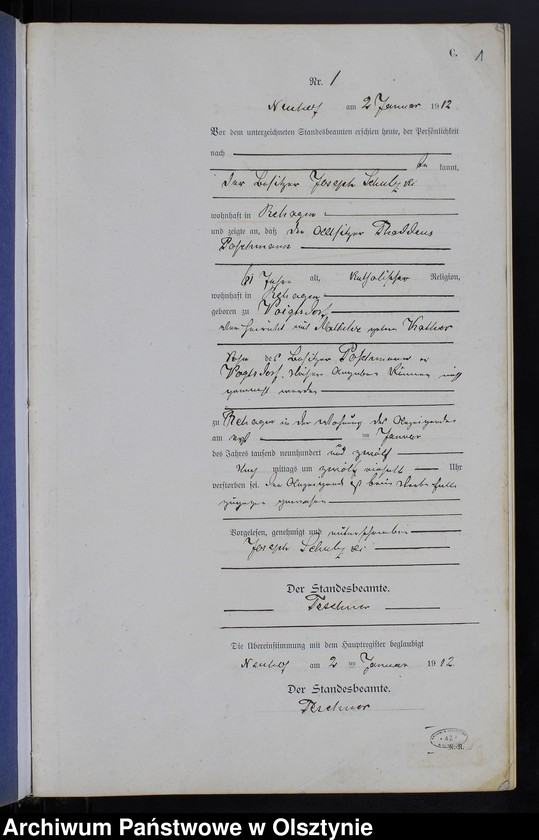 C. 1
Nr. 1
Neuhof am 2 Januar 1912
Vor dem unterzeichneten Standesbeamten erschien heute, der Persönlichkeit
nach
be kannt,
der Besitzer Joseph Schulz
wohnhaft in Rehagen
und zeigte an, daß der Altsitzer Thaddeus
Poschmann
61 Jahre alt, katholischer Religion,
wohnhaft in Rehagen
geboren zu Voigtsdorf
verheiratet mit Mathilde geborene
Sohn des Besitzer Poschmann in
Voigtsdorf. Nähere Angaben können nicht
gemacht werden
zu Rehagen in der Wohnung des Anzeigenden
am ersten Januar
des Jahres tausend neunhundert und zwölf
mittags um zwölf einhalb Uhr
verstorben sei. Der Anzeigende ist beim Sterbefalle
zugegen gewesen
Vorgelesen, genehmigt und unterschrieben
Joseph Schulz
Der Standesbeamte.
Teschner
Die Übereinstimmung mit dem Hauptregister beglaubigt
Neuhof am 2 ten Januar 1912.
Der Standesbeamte.
Teschner
Archiwum Państwowe w Olsztynie